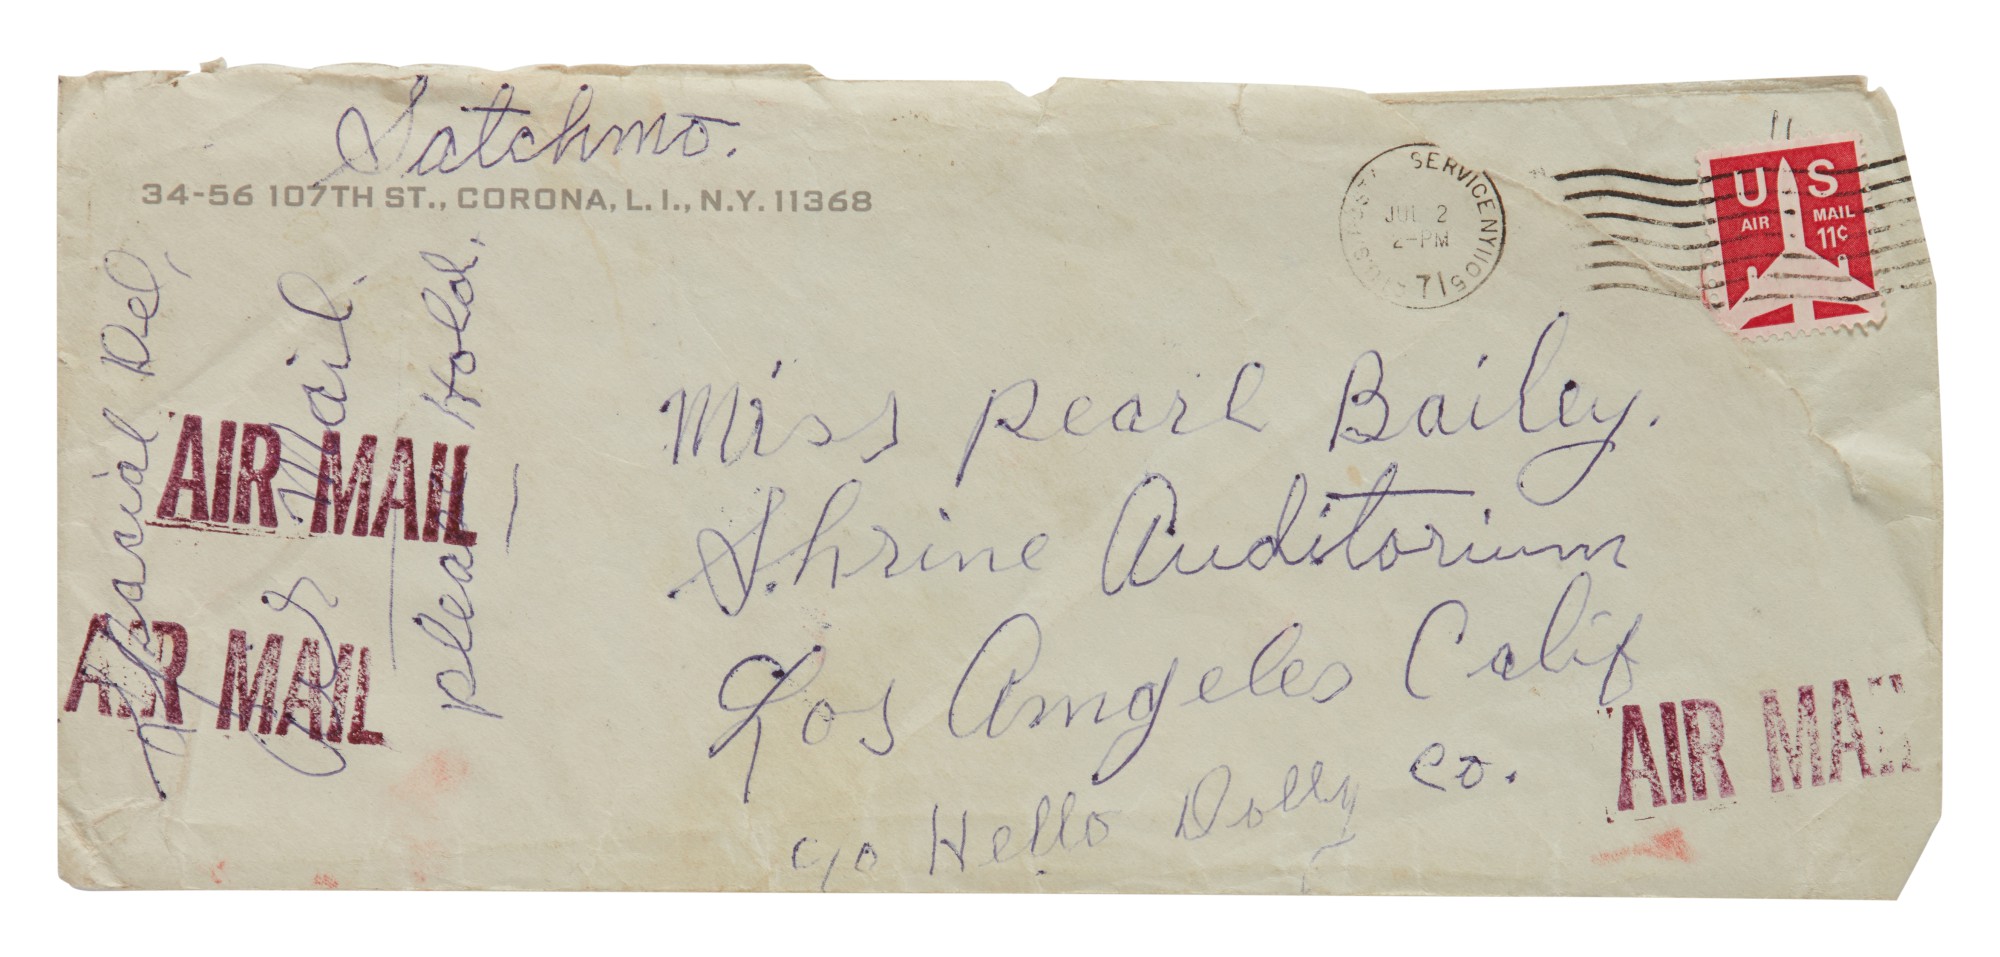 Satchmo.
34-56 107TH ST., CORONA, L. I., N. Y. 11368
SERVICE NY 1105
JUL 2
2-PM
71
U S
AIR MAIL
11¢
Special Del,
Air Mail.
please Hold.
AIR MAIL
AIR MAIL
Miss Pearl Bailey.
Shrine Auditorium
Los Amgeles Calif
c/o Hello Dolly co.
AIR MAIL